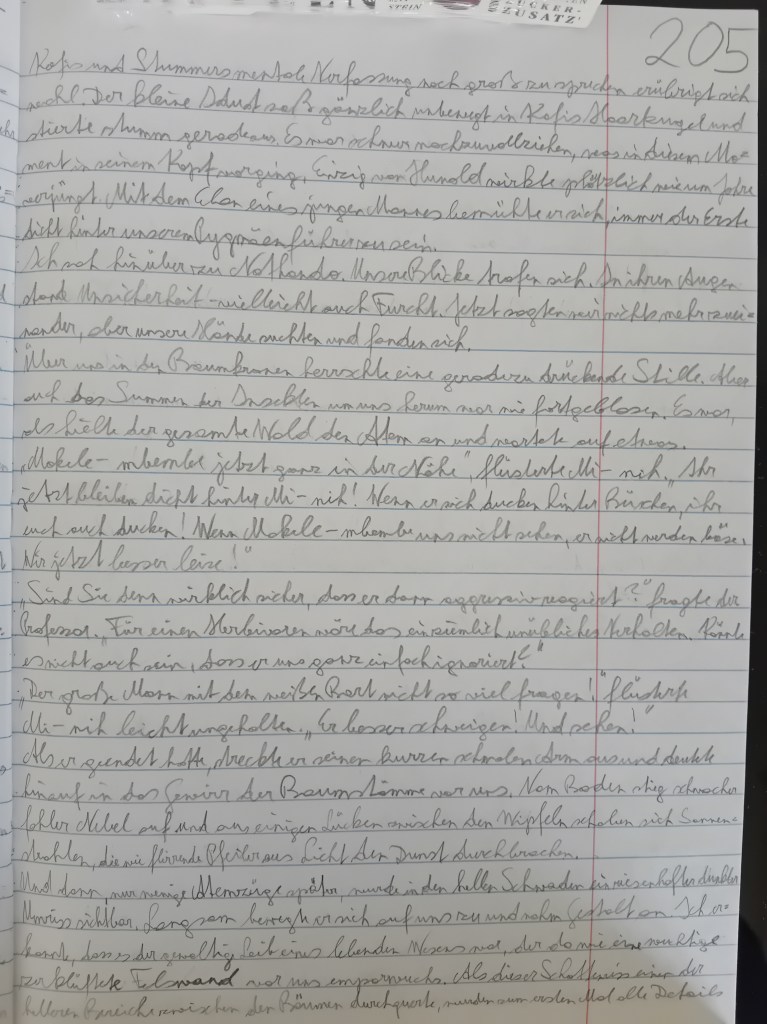 STEIN
ZUCKER-
ZUSATZ
205
Kofis und Stummers mentale Verfassung noch groß zu sprechen erübrigt sich
wohl. Der kleine Idiot saß gänzlich unbewegt in Kofis Haarkugel und
stierte stumm geradeaus. Es war schwer nachzuvollziehen, was in diesem Mo-
ment in seinem Kopf vorging. Einzig von Hunold wirkte plötzlich wie um Jahre
verjüngt. Mit dem Elan eines jungen Mannes bemühte er sich, immer der Erste
dicht hinter unserem Pygmäenführer zu sein.
Ich sah hinüber zu Nothando. Unsere Blicke trafen sich. In ihren Augen
stand Unsicherheit - vielleicht auch Furcht. Jetzt sagten wir nichts mehr zuei-
nander, aber unsere Hände suchten und fanden sich.
Über uns in den Baumkronen herrschte eine geradezu drückende Stille. Aber
auch das Summen der Insekten um uns herum war wie fortgeblasen. Es war,
als hielte der gesamte Wald den Atem an und wartete auf etwas.
„Mokele-mbembe jetzt ganz in der Nähe", flüsterte Mi-nih. „Ihr
jetzt bleiben dicht hinter Mi-nih! Wenn er sich ducken hinter Büschen, ihr
euch auch ducken! Wenn Mokele-mbembe uns nicht sehen, er nicht werden böse.
Wir jetzt besser leise!"
„Sind Sie denn wirklich sicher, dass er dann aggressiv reagiert?" fragte der
Professor. „Für einen Herbivoren wäre das ein ziemlich unübliches Verhalten. Könnte
es nicht auch sein, dass er uns ganz einfach ignoriert?"
„Der große Mann mit dem weißen Bart nicht so viel fragen!" flüsterte
Mi-nih leicht ungehalten. „Er besser schweigen! Und sehen!"
Als er geendet hatte, streckte er seinen kurzen schmalen Arm aus und deutete
hinauf in das Gewirr der Baumstämme vor uns. Vom Boden stieg schwacher
fahler Nebel auf und aus einigen Lücken zwischen den Wipfeln schoben sich Sonnen-
strahlen, die wie flirrende Pfeiler aus Licht den Dunst durchbrachen.
Und dann, nur wenige Atemzüge später, wurde in den hellen Schwaden ein riesenhafter dunkler
Umriss sichtbar. Langsam bewegte er sich auf uns zu und nahm Gestalt an. Ich er-
kannte, dass es der gewaltige Leib eines lebenden Wesens war, der da wie eine wuchtige
zerklüftete Felswand vor uns emporwuchs. Als dieser Schattenriss einen der
helleren Bereiche zwischen den Bäumen durchquerte, wurden zum ersten Mal alle Details